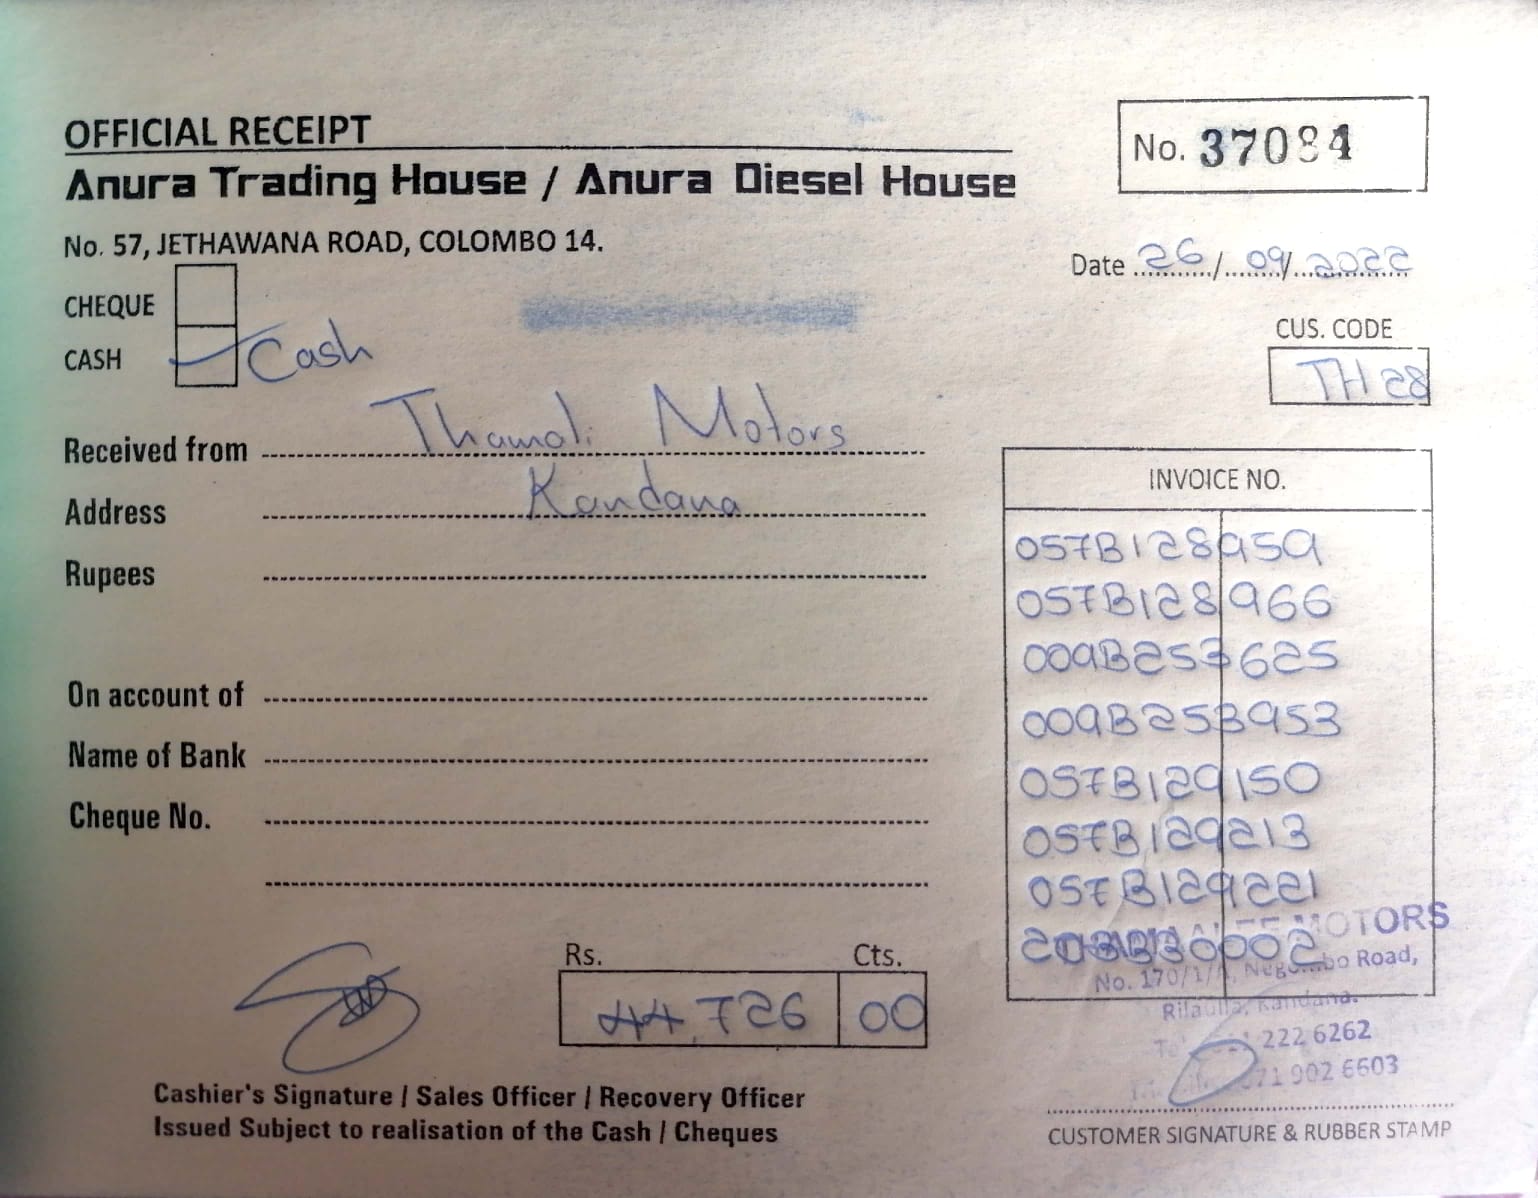 OFFICIAL RECEIPT
No. 37084
Anura Trading House / Anura Diesel House
No. 57, JETHAWANA ROAD, COLOMBO 14.
Date 26/09/2022
CHEQUE
CASH Cash
CUS. CODE
TH 28
Received from Thamali Motors
Address Kandana
Rupees
On account of
Name of Bank
Cheque No.
INVOICE NO.
057B128959
057B128966
009B253625
009B253953
057B129150
057B129213
057B129221
203B30002
MOTORS
No. 170/1/ Negombo Road,
Rilaulla, Kandana.
222 6262
071 902 6603
Rs. Cts.
44,726 00
Cashier's Signature / Sales Officer / Recovery Officer
Issued Subject to realisation of the Cash / Cheques
CUSTOMER SIGNATURE & RUBBER STAMP